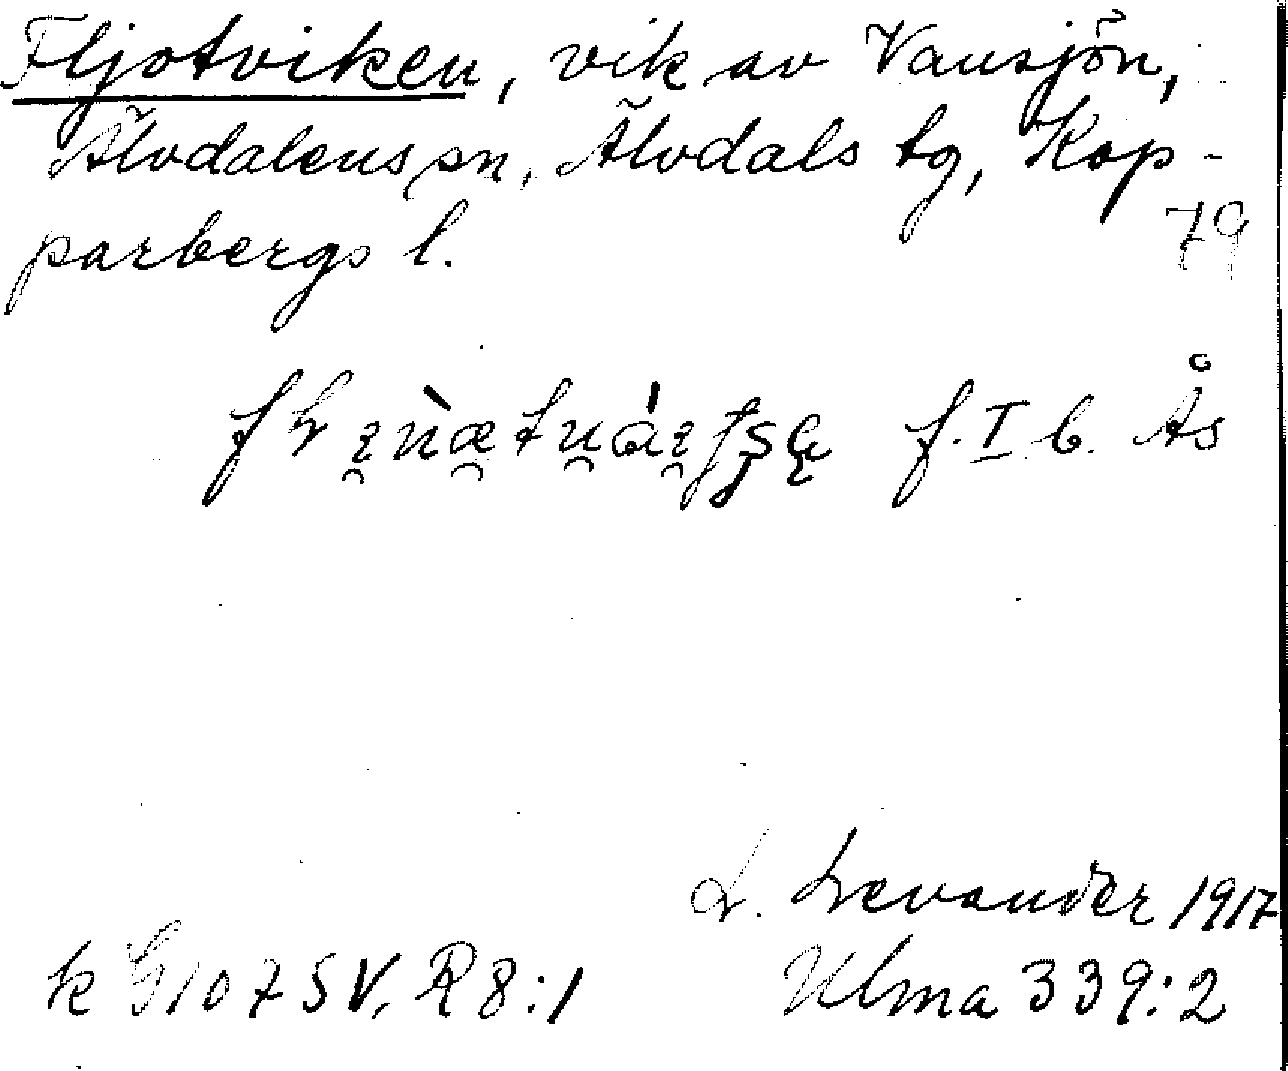 Fljotviken, vik av Vansjön,
Älvdalens sn, Älvdals tg, Kop-
parbergs l.
79
f. I b. Ås
L. Levander 1917
k G 107 SV, R 8:1
Ulma 339:2